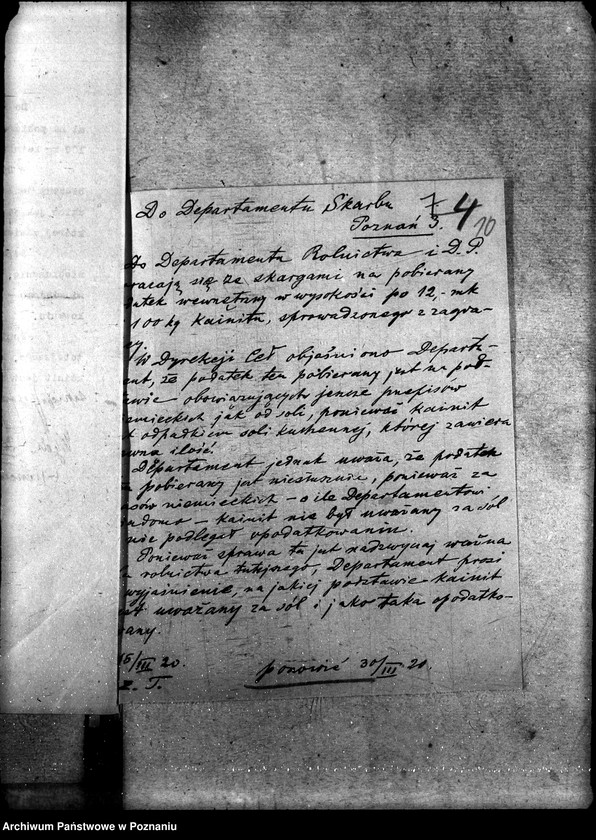 Do Departamentu Skarbu
7 4
10
Poznań 3.
Do Departamentu Rolnictwa i D.P.
racają się ze skargami na pobierany
datek wewnętrzny w wysokości po 12,- mk
100 kg kainitu, sprowadzonego z zagra-
W Dyrekcji Ceł objaśniono Departa-
ent, że podatek ten pobierany jest na pod-
awie obowiązujących jeszcze przepisów
emieckich jak od soli, ponieważ kainit
t odpadkiem soli kuchennej, której zawiera
wna ilość.
Departament jednak uważa, że podatek
n pobierany jest niesłusznie, ponieważ za
asów niemieckich - o ile Departamentowi
iadomo - kainit nie był uważany za sól
nie podlegał opodatkowaniu.
Ponieważ sprawa ta jest nadzwyczaj ważna
a rolnictwa tutejszego, Departament prosi
wyjaśnienie, na jakiej podstawie kainit
est uważany za sól i jako taka opodatko-
any.
16/III 20.
ponowić 30/III 20.
z. T.
Archiwum Państwowe w Poznaniu